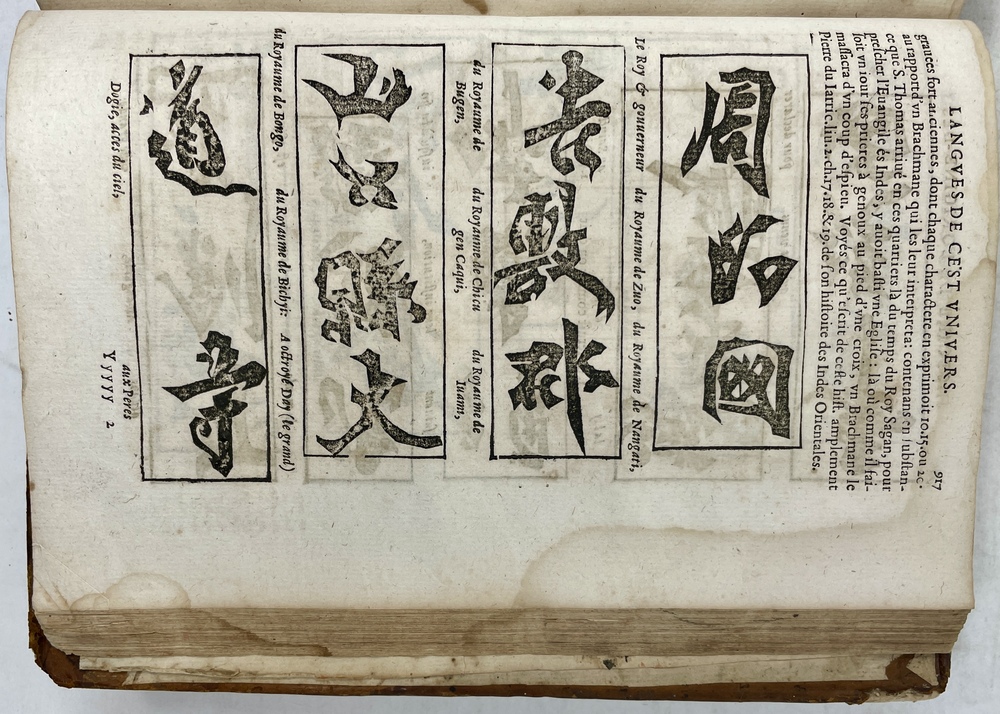 LANGVES DE CEST VNIVERS. 917
grauées fort anciennes, dont chaque charactere en exprimoit 10. 15. ou 20.
au rapport d'vn Brachmane qui les leur interpreta: contenans en substan-
ce que S. Thomas arriué en ces quartiers là du temps du Roy Sagan, pour
prescher l'Euangile és Indes, y auoit basti vne Eglise: là où comme il fai-
soit vn iour ses prieres à genoux au pied d'vne croix, vn Brachmane le
massacra d'vn coup d'espieu. Voyés ce qu'escrit de ceste hist. amplement
Pierre du Iarric, liu. 2. ch. 17. 18. & 19. de son histoire des Indes Orientales.
周 國
Le Roy & gouuerneur du Royaume de Zuo, du Royaume de Nangati,
吉 敷 郡
du Royaume de du Royaume de Chicu du Royaume de
Bugen, gen Caqui, Iuami,
縣 大
du Royaume de Bongo, du Royaume de Bichij: A octroyé Day (le grand)
道 寺
Dogie, acces du ciel, aux Peres
Yyyyy 2